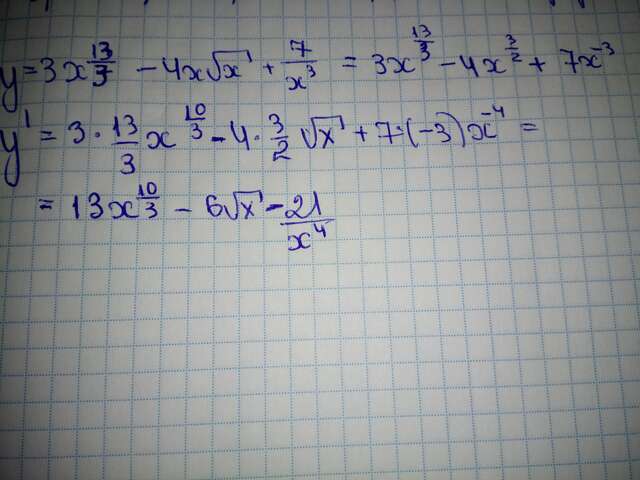 y = 3x^{13/3} - 4x√x + 7/x^3 = 3x^{13/3} - 4x^{3/2} + 7x^{-3}
y' = 3 · 13/3 x^{10/3} - 4 · 3/2 √x + 7 · (-3) x^{-4} =
= 13x^{10/3} - 6√x - 21/x^4